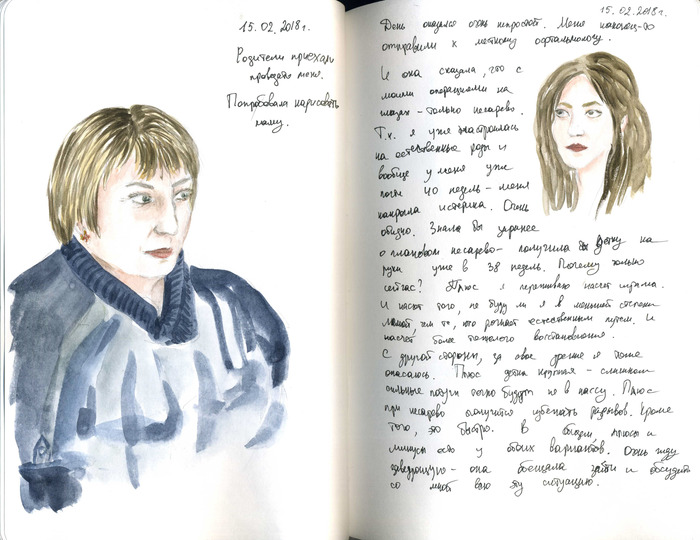 15.02.2018г.
Родители приехали
проведать меня.
Попробовала нарисовать
маму.
15.02.2018г.
День оказался очень непростой. Меня наконец-то
отправили к местному офтальмологу.
И она сказала, что с
моими операциями на
глазах - только кесарево.
Т.к. я уже настроилась
на естественные роды и
вообще у меня уже
почти 40 недель - меня
накрыла истерика. Очень
обидно. Знала бы заранее
о плановом кесарево - получила бы детку на
руки уже в 38 недель. Почему только
сейчас? Плюс я переживаю насчет шрама.
И насчет того, не буду ли я в меньшей степени
мамой, чем те, кто рожает естественным путем. И
насчет более тяжелого восстановления.
С другой стороны, за свое зрение я тоже
опасалась. Плюс детка крупная - слишком
сильные потуги точно будут не в кассу. Плюс
при кесарево получится избежать разрывов. Кроме
того, это быстро. В общем, плюсы и
минусы есть у обоих вариантов. Очень жду
заведующую - она обещала зайти и обсудить
со мной всю эту ситуацию.